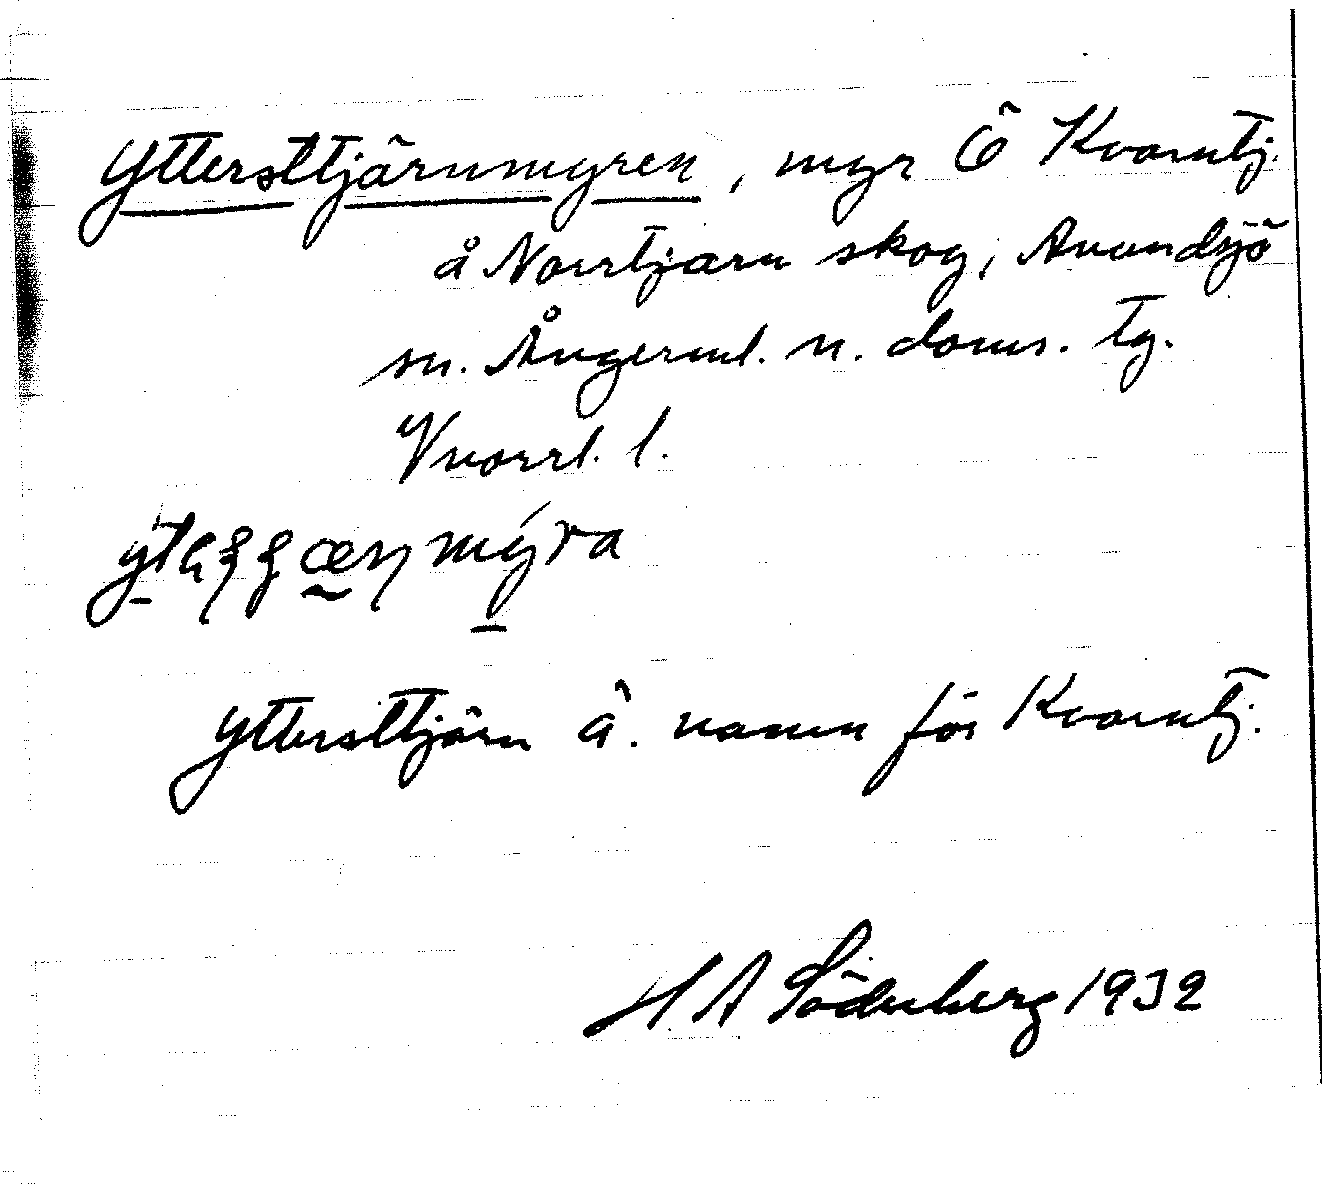 Yttersttjärnmyren, myr Ö Kvarntj.
å Norrtjärn skog, Anundsjö
sn. Ångerml. n. doms. tg.
Vnorrl. l.
myra
Yttersttjärn a. namn för Kvarntj.
H A Söderberg 1932